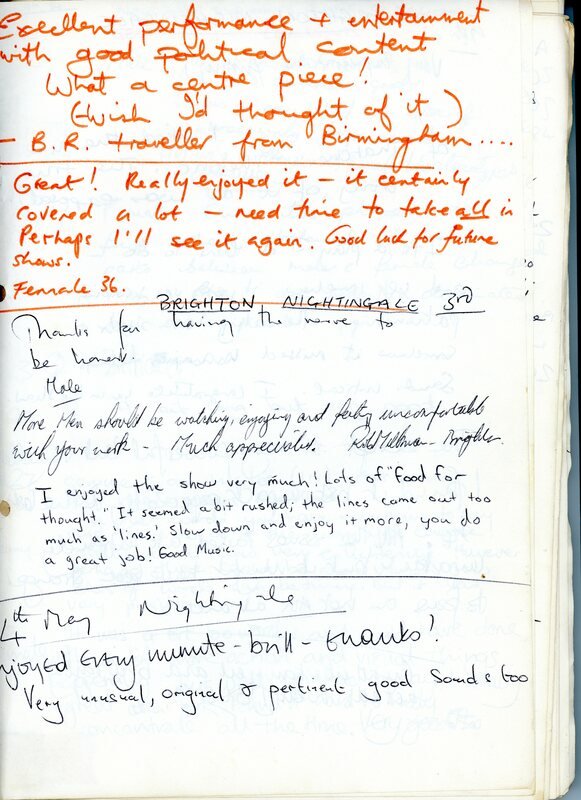 Excellent performance + entertainment
with good political content
What a centre piece!
(Wish I'd thought of it)
- B.R. traveller from Birmingham....
Great! Really enjoyed it - it certainly
covered a lot - need time to take all in
Perhaps I'll see it again. Good luck for future
shows.
Female 36.
BRIGHTON NIGHTINGALE 3RD
Thanks for having the nerve to
be honest.
Male
More Men should be watching, enjoying and feeling uncomfortable
with your work - Much appreciated. Brighton.
I enjoyed the show very much! Lots of "food for
thought." It seemed a bit rushed; the lines came out too
much as 'lines.' Slow down and enjoy it more, you do
a great job! Good Music.
4th May Nightingale
njoyed Every minute - brill - thanks!
Very unusual, original & pertinent good Sounds too